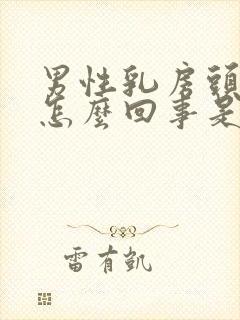 男性乳房頭
怎麼回事是
雷有凱